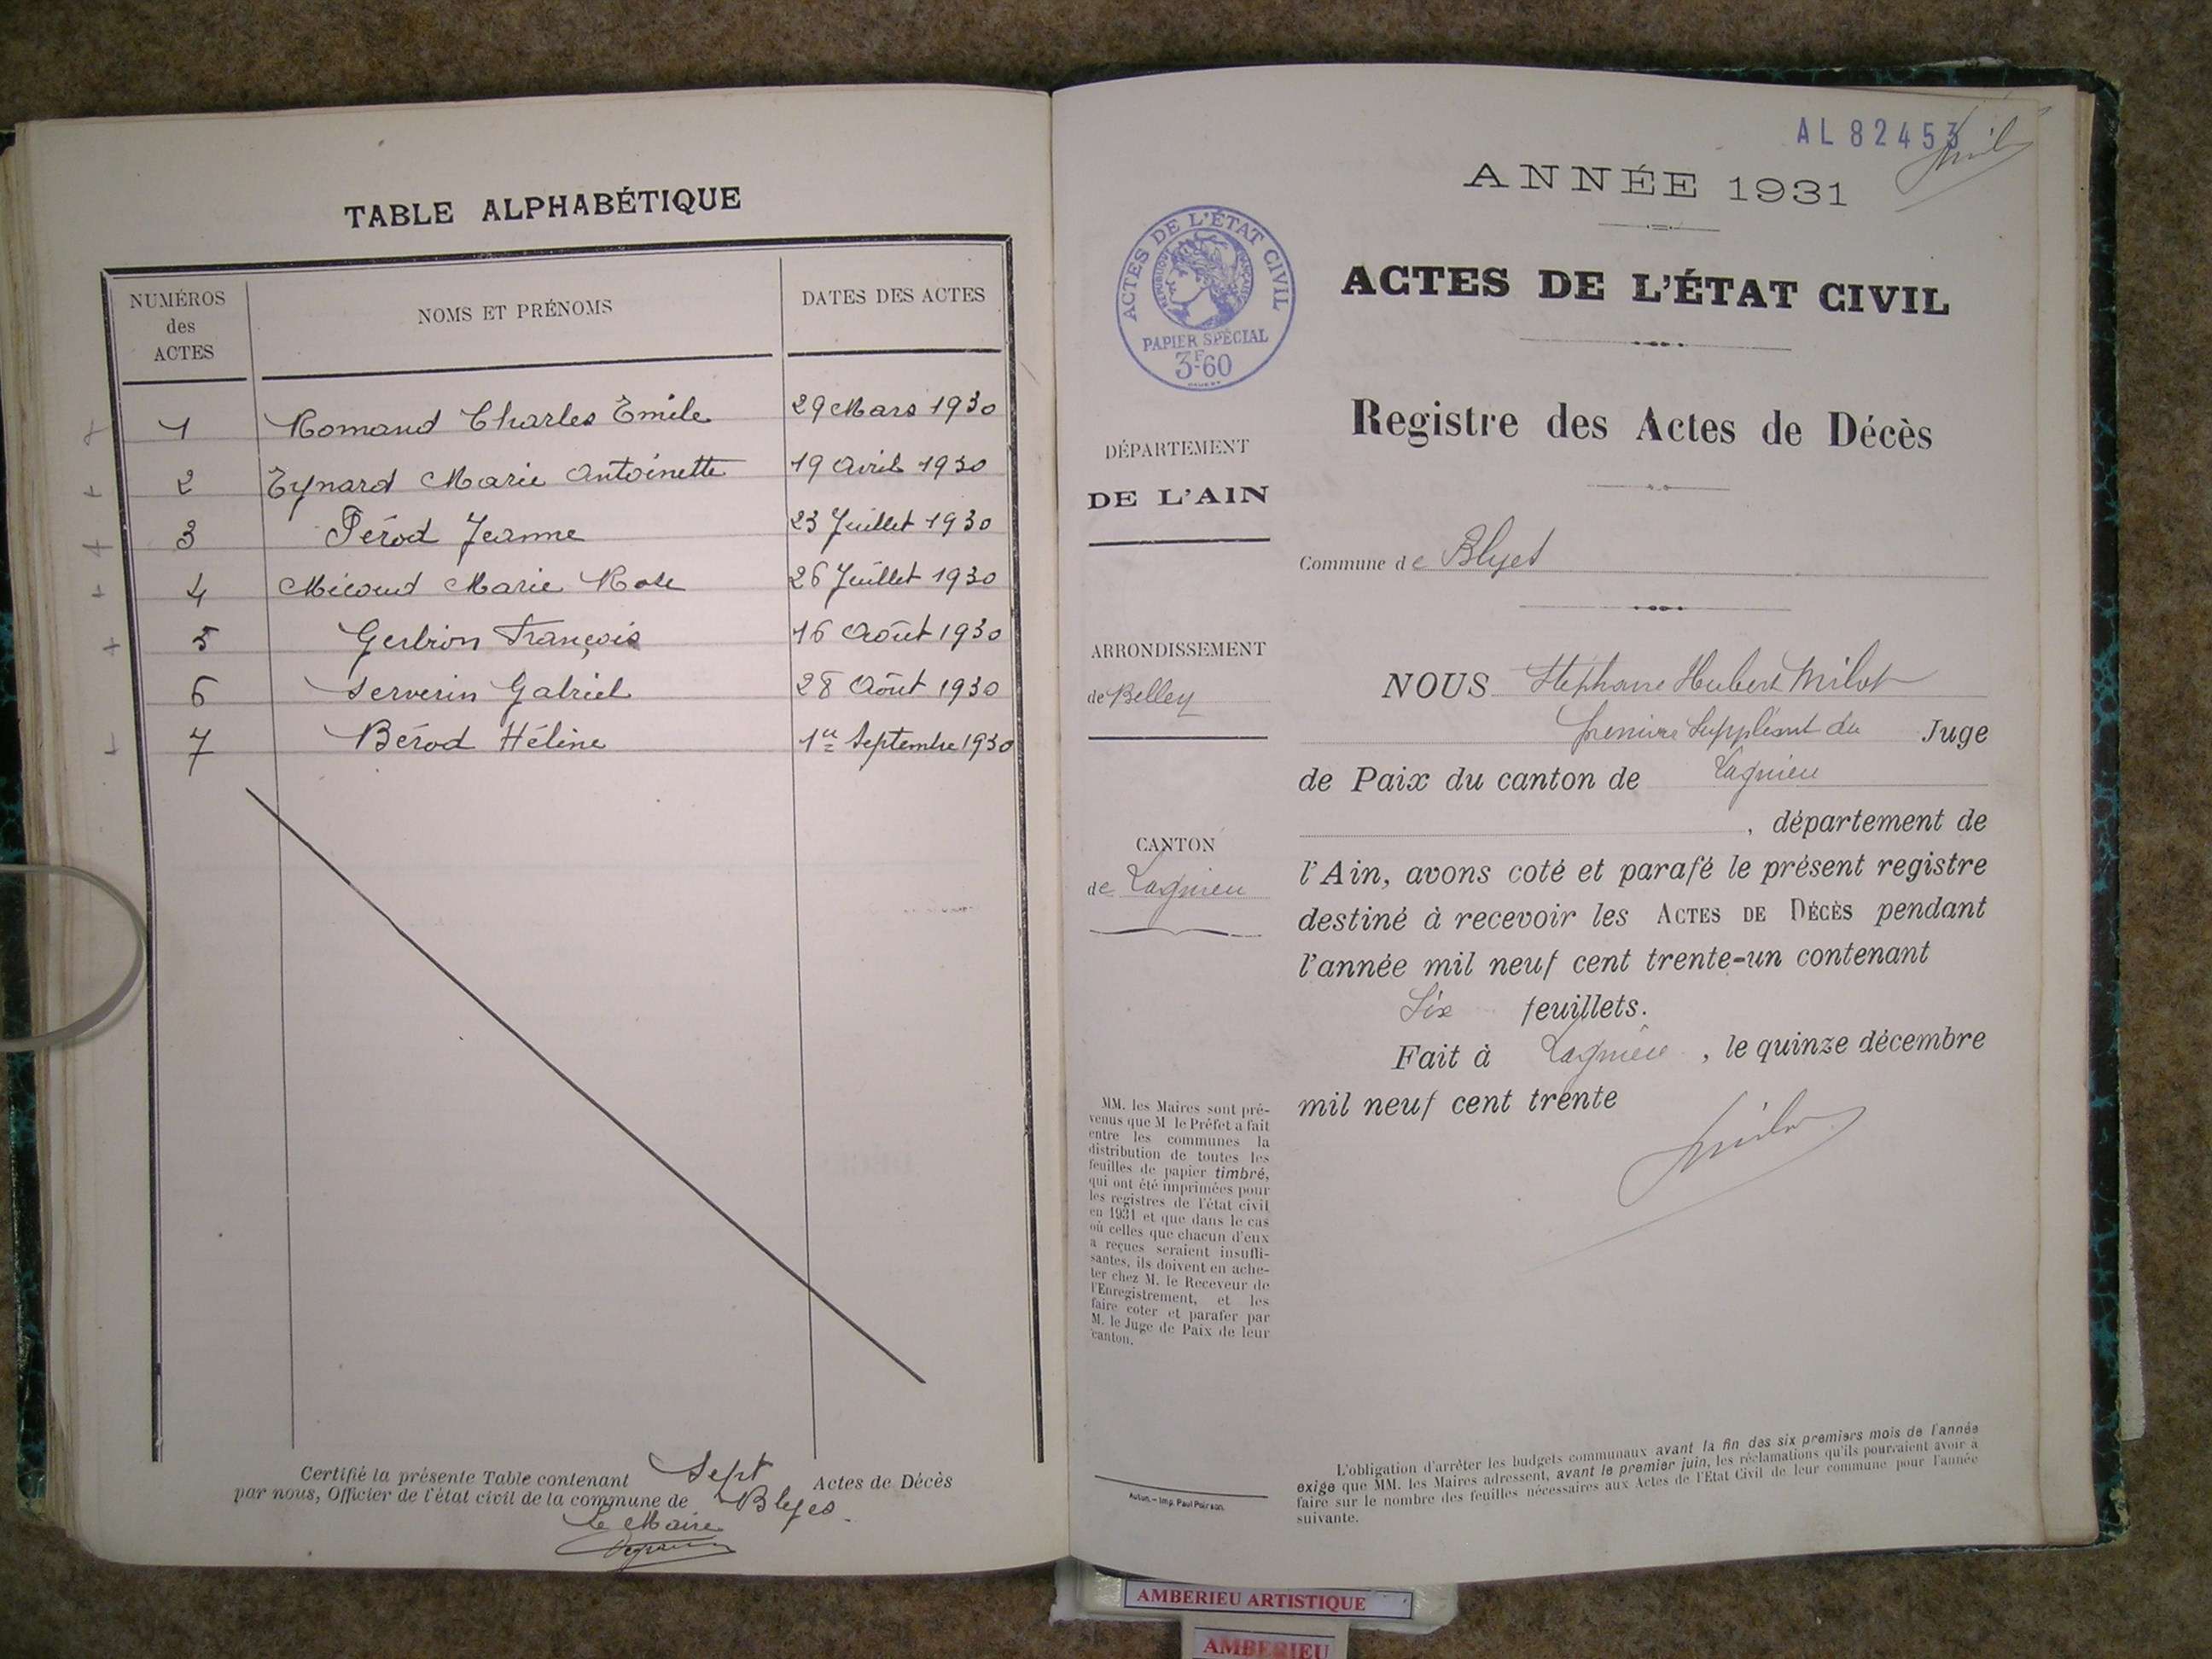 TABLE ALPHABÉTIQUE
NUMÉROS
des
ACTES
NOMS ET PRÉNOMS
DATES DES ACTES
1 Romand Charles Emile 29 Mars 1930
2 Eynard Marie Antoinette 19 Avril 1930
3 Férod Jeanne 23 Juillet 1930
4 Micoud Marie Rose 26 Juillet 1930
5 Gerbion François 16 Août 1930
6 Serverin Gabriel 28 Août 1930
7 Bérod Hélène 1er Septembre 1930
Certifié la présente Table contenant Sept Actes de Décès
par nous, Officier de l'état civil de la commune de Blyes.
Le Maire
AL 82453
ANNÉE 1931
ACTES DE L'ÉTAT CIVIL
RÉPUBLIQUE FRANÇAISE
PAPIER SPÉCIAL
3F60
ACTES DE L'ÉTAT CIVIL
Registre des Actes de Décès
DÉPARTEMENT
DE L'AIN
Commune de Blyes
ARRONDISSEMENT
de Belley
CANTON
de Lagnieu
NOUS Stéphane Hubert Milot
premier Suppléant du Juge
de Paix du canton de Lagnieu
, département de
l'Ain, avons coté et parafé le présent registre
destiné à recevoir les ACTES DE DÉCÈS pendant
l'année mil neuf cent trente-un contenant
Six feuillets.
Fait à Lagnieu, le quinze décembre
mil neuf cent trente
MM. les Maires sont pré-
venus que M le Préfet a fait
entre les communes la
distribution de toutes les
feuilles de papier timbré,
qui ont été imprimées pour
les registres de l'état civil
en 1931 et que dans le cas
où celles que chacun d'eux
a reçues seraient insuffi-
santes, ils doivent en ache-
ter chez M. le Receveur de
l'Enregistrement, et les
faire coter et parafer par
M. le Juge de Paix de leur
canton.
Autun. — Imp. Paul Poirson.
L'obligation d'arrêter les budgets communaux avant la fin des six premiers mois de l'année
exige que MM. les Maires adressent, avant le premier juin, les réclamations qu'ils pourraient avoir à
faire sur le nombre des feuilles nécessaires aux Actes de l'Etat Civil de leur commune pour l'année
suivante.
AMBERIEU ARTISTIQUE
AMBERIEU